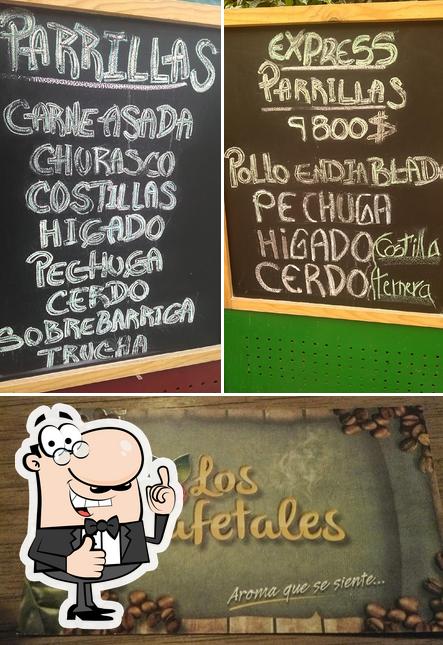 PARRILLAS
CARNE ASADA
CHURASCO
COSTILLAS
HIGADO
PECHUGA
CERDO
SOBREBARRIGA
TRUCHA
EXPRESS
PARRILLAS
9800$
POLLO ENDIABLAD
PECHUGA
HIGADO Costilla
CERDO
Los
afetales
Aroma que se siente...